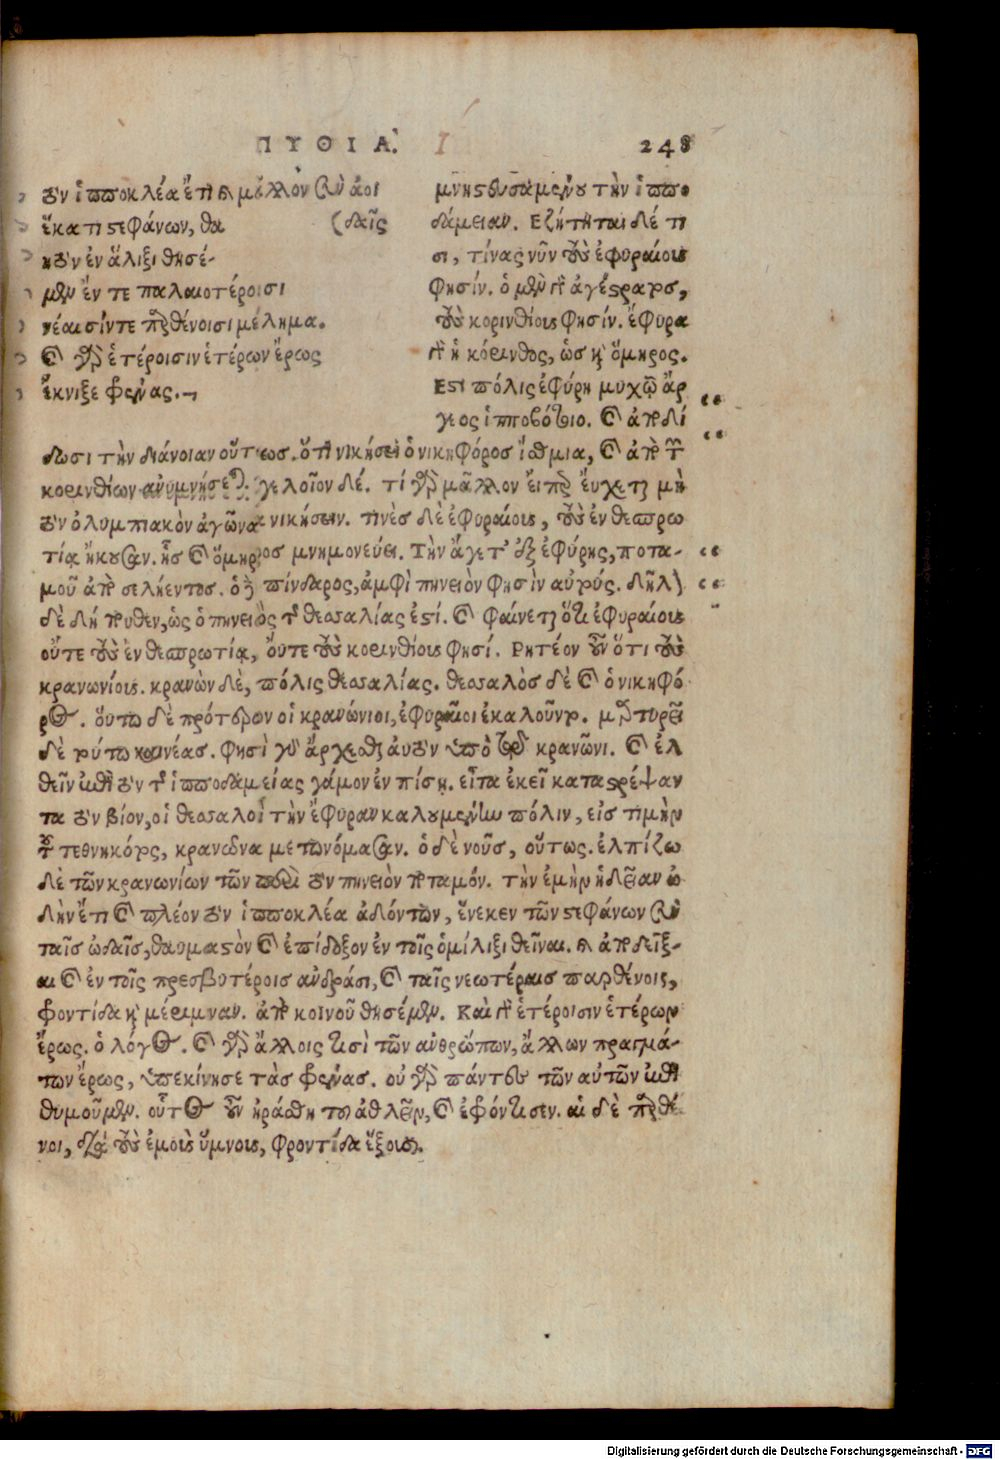 ΠΥΘΙΑ. I 248
τὸν ἱπποκλέα ἔτι καὶ μᾶλλον σὺν ἀοι
ἕκατι στεφάνων, θα (δαῖς
ητὸν ἐν ἅλιξι θησέ-
μεν ἔν τε παλαιοτέροισι
νέαισίντε παρθένοισι μέλημα.
καὶ γὰρ ἑτέροισιν ἑτέρων ἔρως
ἔκνιξε φρένας.
μνηστευσαμένου τὴν ἱππο-
δάμειαν. Εζήτηται δέ τι
σι, τίνας νῦν τοὺς ἐφυραίους
φησίν. ὁ μὲν γὰρ ἀγέστρατος,
τοὺς κορινθίους φησίν. ἔφυρα
γὰρ ἡ κόρινθος, ὡς καὶ ὅμηρος.
Εστι πόλις ἐφύρη μυχῷ ἄρ
γεος ἱπποβότοιο. καὶ ἀποδί
δωσι τὴν διάνοιαν οὕτως. ὅτι νικήσει ὁ νικηφόρος ἴσθμια, καὶ ἀπὸ τῶν
κορινθίων ἀνυμνήσεται. γελοῖον δέ. τί γὰρ μᾶλλον εἴπερ εὔχεται μὴ
τὸν ὀλυμπιακὸν ἀγῶνα νικήσειν. τινὲς δὲ ἐφυραίους, τοὺς ἐν θεσπρω
τίᾳ ἤκουσαν. ἧς καὶ ὅμηρος μνημονεύει. Τὴν ἄγετ' ἐξ ἐφύρης, ποτα-
μοῦ ἀπὸ σελήεντος. ὁ δὲ πίνδαρος, ἀμφὶ πηνειὸν φησὶν αὐτούς. δῆλον
δὲ δήπουθεν, ὡς ὁ πηνειὸς τῆς θεσσαλίας ἐστί. καὶ φαίνεται ὅτι ἐφυραίους
οὔτε τοὺς ἐν θεσπρωτίᾳ, οὔτε τοὺς κορινθίους φησί. Ρητέον οὖν ὅτι τοὺς
κρανωνίους. κρανὼν δὲ, πόλις θεσσαλίας. θεσσαλὸς δὲ καὶ ὁ νικηφό
ρος. οὕτω δὲ πρότερον οἱ κρανώνιοι, ἐφυραῖοι ἐκαλοῦντο. μαρτυρεῖ
δὲ τούτῳ κινέας. φησὶ γὰρ ἄρχεσθαι αὐτὸν ὑπὸ τῷ κρανῶνι. καὶ ἐλ
θεῖν ἐπὶ τὸν τῆς ἱπποδαμείας γάμον ἐν πίσῃ. εἶτα ἐκεῖ καταστρέψαν
τα τὸν βίον, οἱ θεσσαλοὶ τὴν ἔφυραν καλουμένην πόλιν, εἰς τιμὴν
τοῦ τεθνηκότος, κρανῶνα μετωνόμασαν. ὁ δὲ νοῦς, οὕτως. ἐλπίζω
δὲ τῶν κρανωνίων τῶν περὶ τὸν πηνειὸν ποταμόν. τὴν ἐμὴν ἡδεῖαν ὠ
δὴν ἔτι καὶ πλέον τὸν ἱπποκλέα ᾀδόντων, ἕνεκεν τῶν στεφάνων σὺν
ταῖς ὠδαῖς, θαυμαστὸν καὶ ἐπίδοξον ἐν τοῖς ὁμίλιξι θεῖναι. καὶ ἀποδεῖξ-
αι καὶ ἐν τοῖς πρεσβυτέροις ἀνδράσι, καὶ ταῖς νεωτέραις παρθένοις,
φροντίδα καὶ μέριμναν. ἀπὸ κοινοῦ θησέμεν. Καὶ γὰρ ἑτέροισιν ἑτέρων
ἔρως. ὁ λόγος. καὶ γὰρ ἄλλοις τισὶ τῶν ἀνθρώπων, ἄλλων πραγμά-
των ἔρως, ὑπεκίνησε τὰς φρένας. οὐ γὰρ πάντες τῶν αὐτῶν ἐπι
θυμοῦμεν. οὗτος οὖν ἠράσθη τοῦ ἀθλεῖν, καὶ ἐφρόντισεν. αἱ δὲ παρθέ
νοι, διὰ τοὺς ἐμοὺς ὕμνους, φροντίδα ἕξουσι.
Digitalisierung gefördert durch die Deutsche Forschungsgemeinschaft - DFG